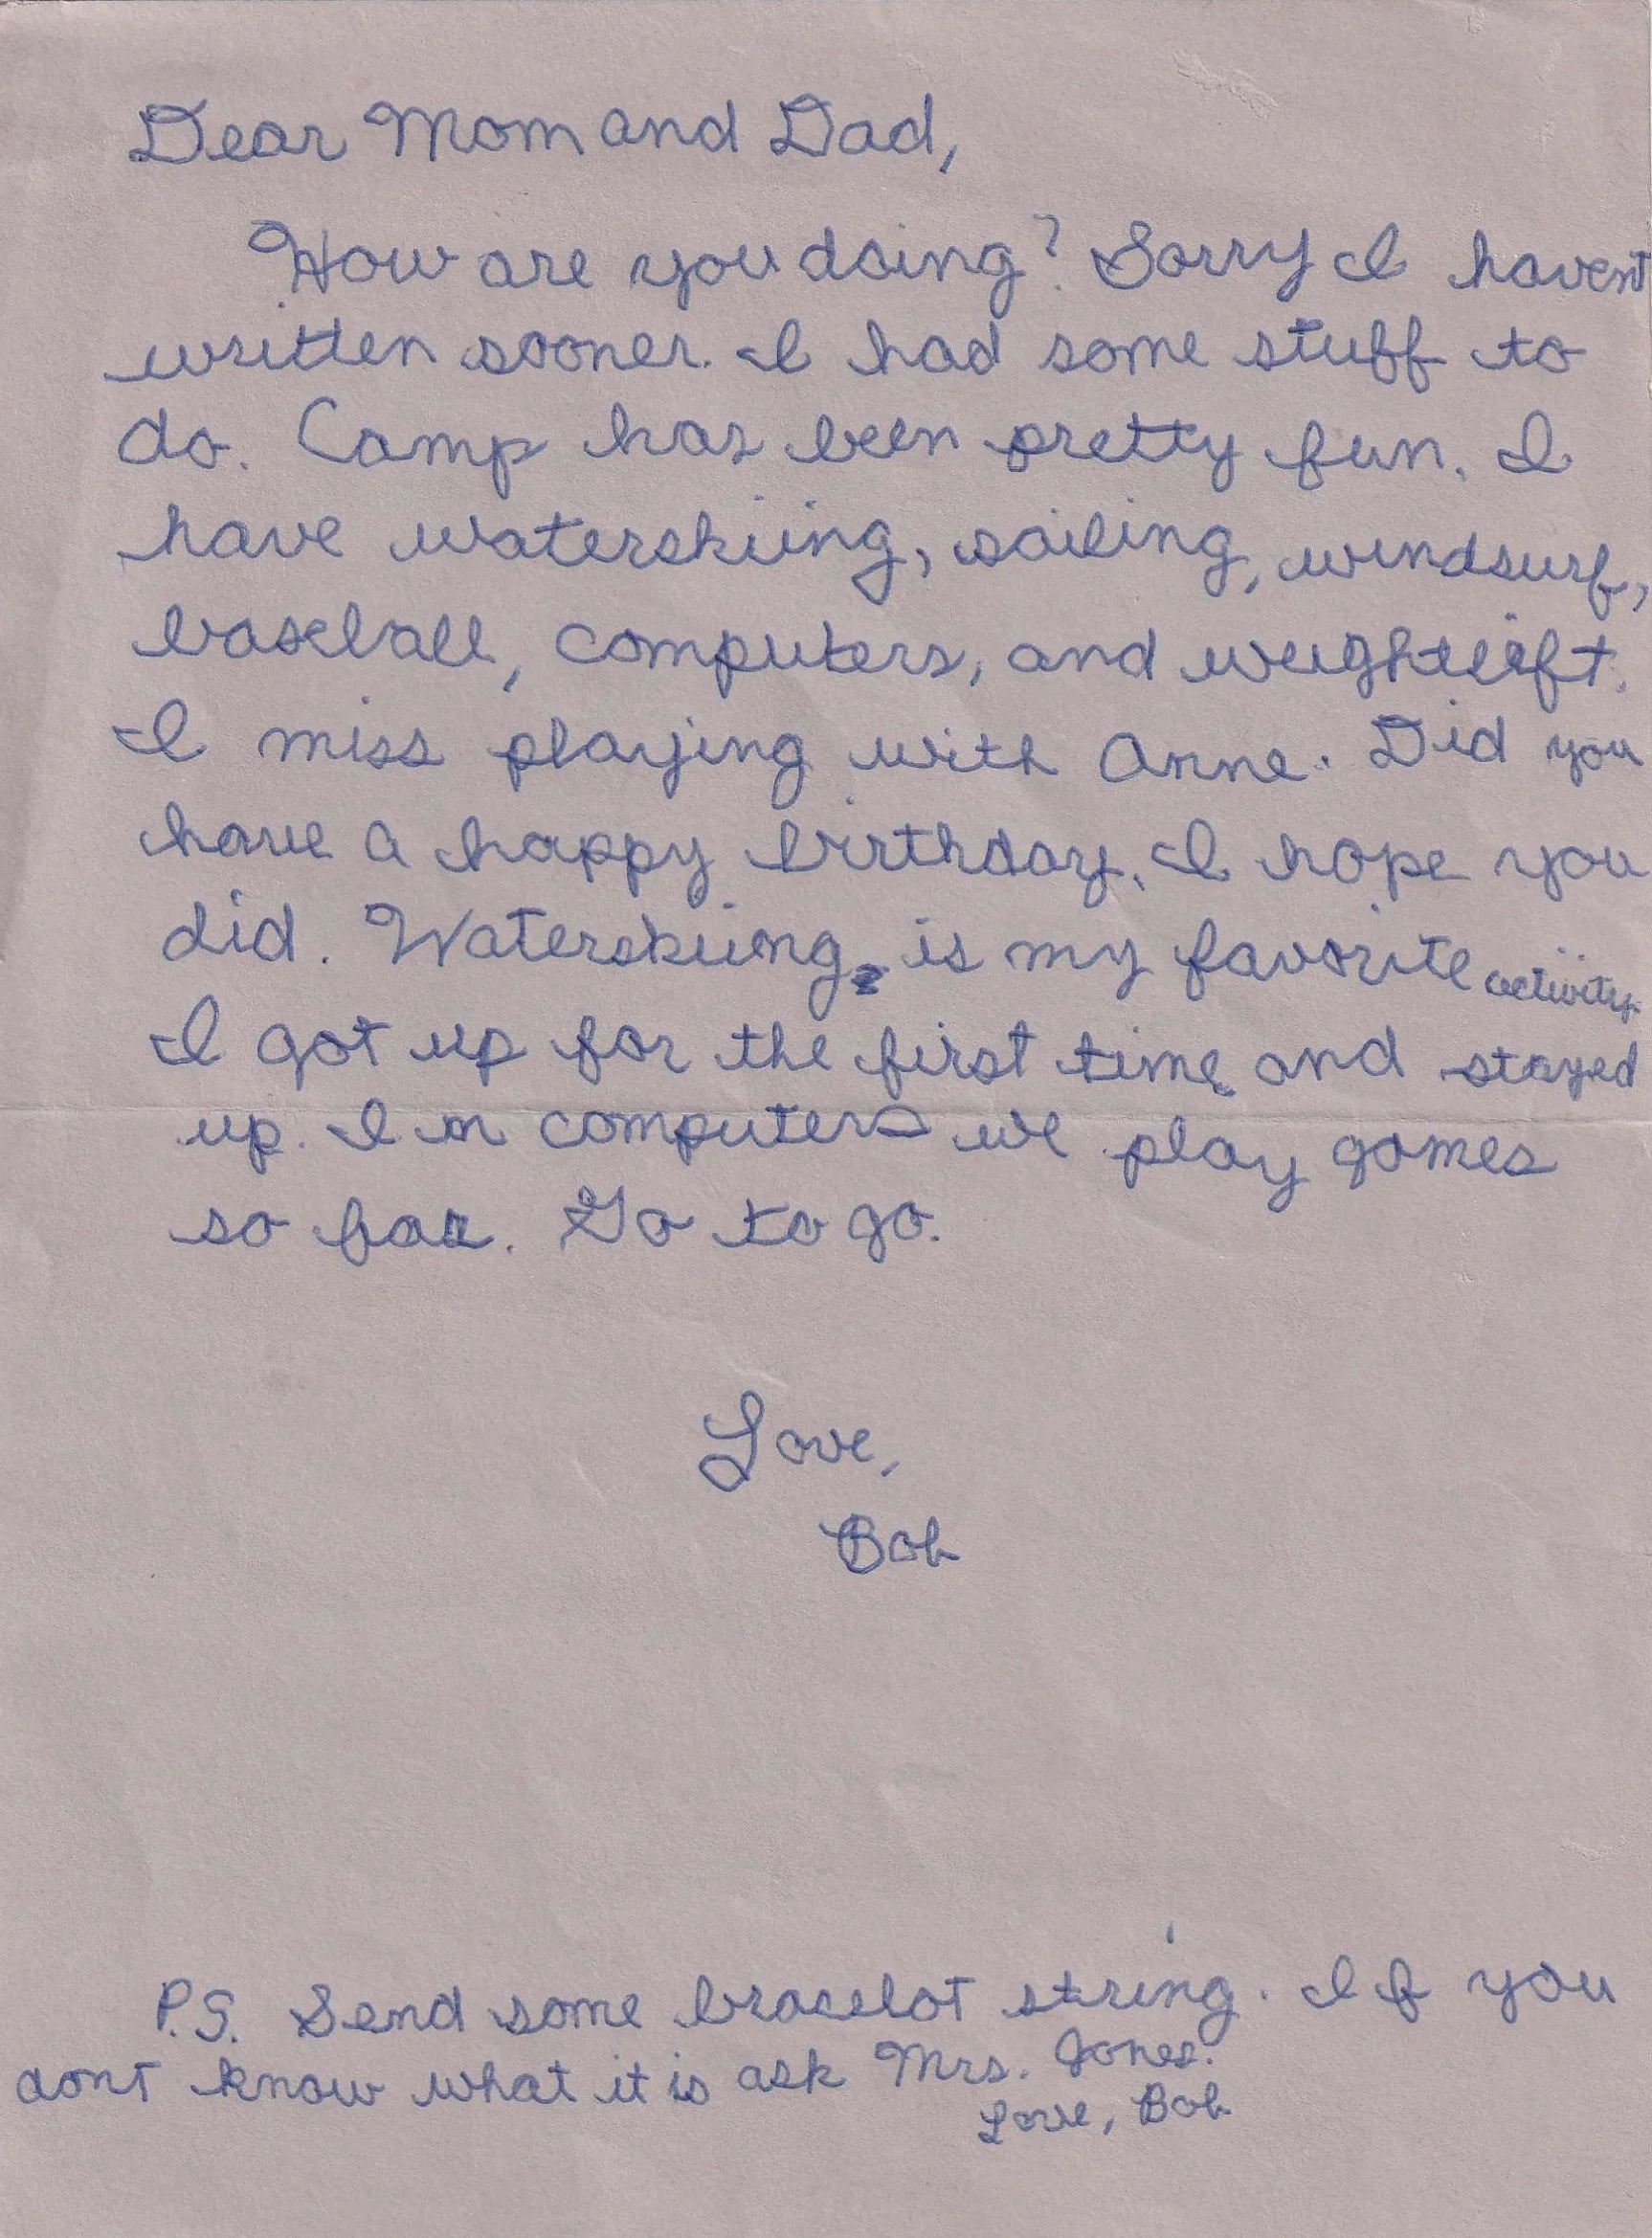 Dear Mom and Dad,
How are you doing? Sorry I havent
written sooner. I had some stuff to
do. Camp has been pretty fun. I
have waterskiing, sailing, windsurf,
baseball, computers, and weightlift.
I miss playing with Anne. Did you
have a happy birthday. I hope you
did. Waterskiing is my favorite activity.
I got up for the first time and stayed
up. In computers we play games
so far. Go to go.
Love,
Bob
P.S. Send some bracelot string. If you
dont know what it is ask Mrs. Jones.
Love, Bob